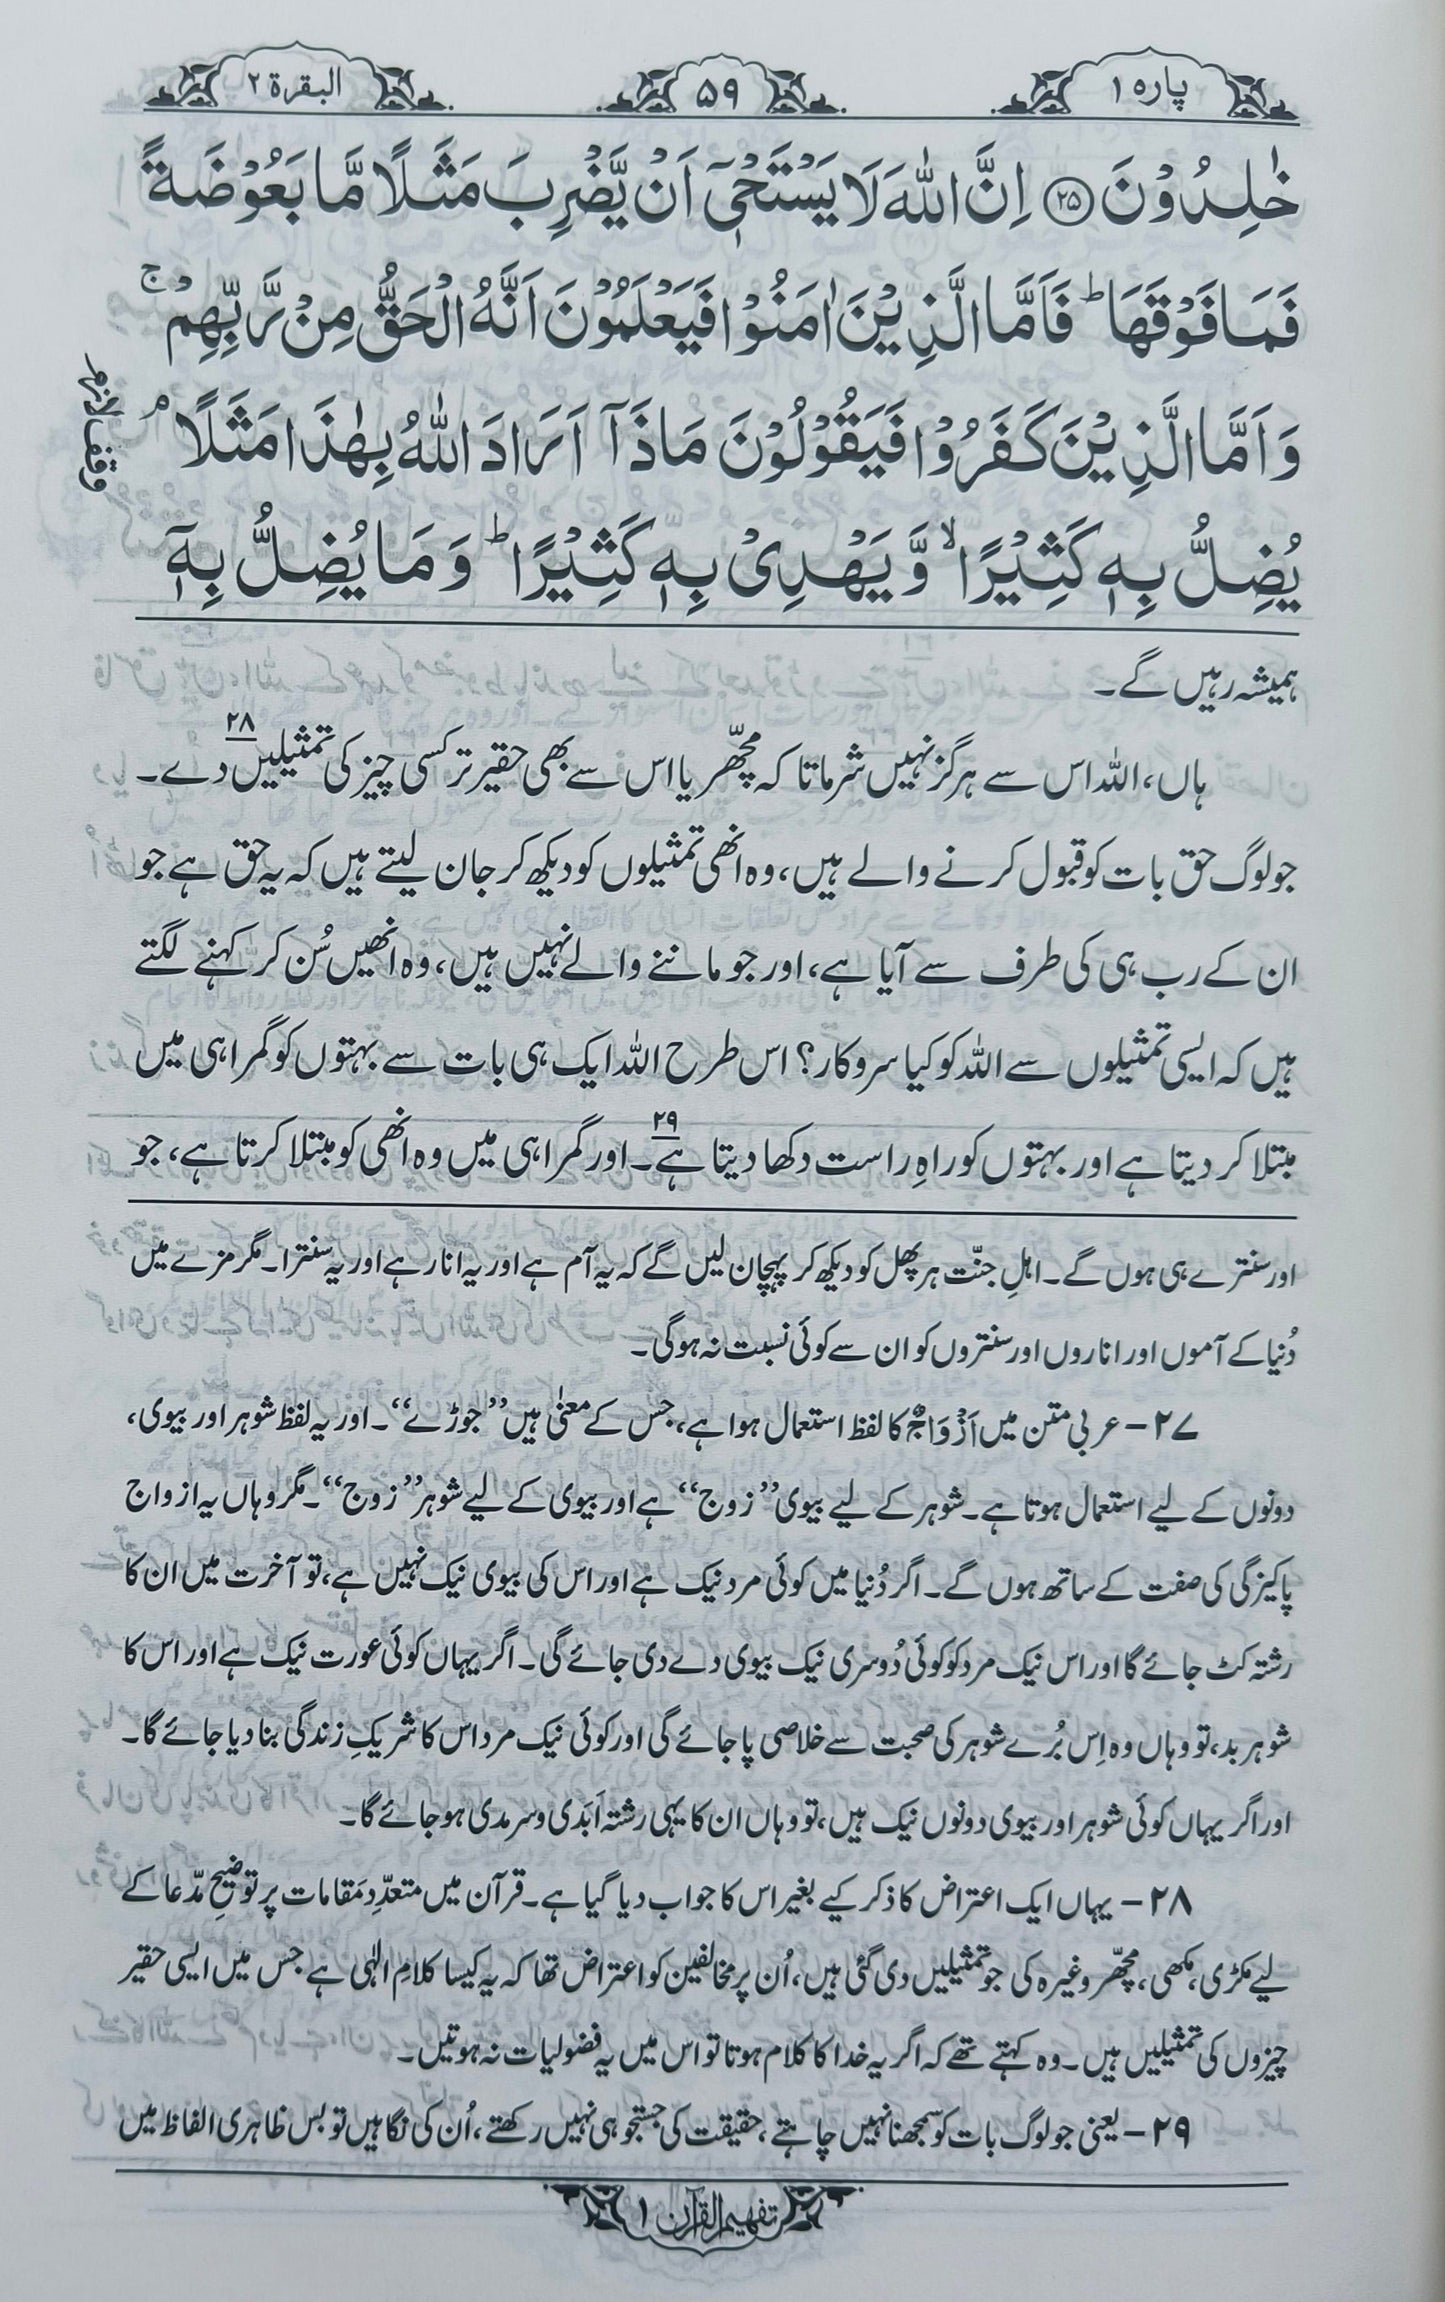 پارہ ۱
۵۹
البقرۃ ۲
خٰلِدُوْنَ ﴿۲۵﴾ اِنَّ اللّٰهَ لَا یَسْتَحْیٖۤ اَنْ یَّضْرِبَ مَثَلًا مَّا بَعُوْضَةً
فَمَا فَوْقَهَا ؕ فَاَمَّا الَّذِیْنَ اٰمَنُوْا فَیَعْلَمُوْنَ اَنَّهُ الْحَقُّ مِنْ رَّبِّهِمْ ۚ
وَ اَمَّا الَّذِیْنَ كَفَرُوْا فَیَقُوْلُوْنَ مَاذَاۤ اَرَادَ اللّٰهُ بِهٰذَا مَثَلًا ۘ
وقف لازم
یُضِلُّ بِهٖ كَثِیْرًا ۙ وَّ یَهْدِیْ بِهٖ كَثِیْرًا ؕ وَ مَا یُضِلُّ بِهٖۤ
ہمیشہ رہیں گے۔
ہاں، اللہ اس سے ہرگز نہیں شرماتا کہ مچھّر یا اس سے بھی حقیر تر کسی چیز کی تمثیلیں دے۔ ۲۸
جو لوگ حق بات کو قبول کرنے والے ہیں، وہ انھی تمثیلوں کو دیکھ کر جان لیتے ہیں کہ یہ حق ہے جو
ان کے رب ہی کی طرف سے آیا ہے، اور جو ماننے والے نہیں ہیں، وہ انھیں سُن کر کہنے لگتے
ہیں کہ ایسی تمثیلوں سے اللہ کو کیا سروکار؟ اس طرح اللہ ایک ہی بات سے بہتوں کو گمراہی میں
مبتلا کر دیتا ہے اور بہتوں کو راہِ راست دکھا دیتا ہے۔ ۲۹ اور گمراہی میں وہ انھی کو مبتلا کرتا ہے، جو
اور سنترے ہی ہوں گے۔ اہلِ جنّت ہر پھل کو دیکھ کر پہچان لیں گے کہ یہ آم ہے اور یہ انار ہے اور یہ سنترا۔ مگر مزے میں
دُنیا کے آموں اور اناروں اور سنتروں کو ان سے کوئی نسبت نہ ہوگی۔
۲۷ – عربی متن میں اَزْوَاجٌ کا لفظ استعمال ہوا ہے، جس کے معنیٰ ہیں ”جوڑے“۔ اور یہ لفظ شوہر اور بیوی،
دونوں کے لیے استعمال ہوتا ہے۔ شوہر کے لیے بیوی ”زوج“ ہے اور بیوی کے لیے شوہر ”زوج“۔ مگر وہاں یہ ازواج
پاکیزگی کی صفت کے ساتھ ہوں گے۔ اگر دُنیا میں کوئی مرد نیک ہے اور اس کی بیوی نیک نہیں ہے، تو آخرت میں ان کا
رشتہ کٹ جائے گا اور اس نیک مرد کو کوئی دُوسری نیک بیوی دے دی جائے گی۔ اگر یہاں کوئی عورت نیک ہے اور اس کا
شوہر بد، تو وہاں وہ اِس بُرے شوہر کی صحبت سے خلاصی پا جائے گی اور کوئی نیک مرد اس کا شریکِ زندگی بنا دیا جائے گا۔
اور اگر یہاں کوئی شوہر اور بیوی دونوں نیک ہیں، تو وہاں ان کا یہی رشتہ اَبَدی و سرمدی ہو جائے گا۔
۲۸ – یہاں ایک اعتراض کا ذکر کیے بغیر اس کا جواب دیا گیا ہے۔ قرآن میں متعدّد مَقامات پر توضیحِ مدّعا کے
لیے مکڑی، مکھی، مچھّر وغیرہ کی جو تمثیلیں دی گئی ہیں، اُن پر مخالفین کو اعتراض تھا کہ یہ کیسا کلامِ الٰہی ہے جس میں ایسی حقیر
چیزوں کی تمثیلیں ہیں۔ وہ کہتے تھے کہ اگر یہ خدا کا کلام ہوتا تو اس میں یہ فضولیات نہ ہوتیں۔
۲۹ – یعنی جو لوگ بات کو سمجھنا نہیں چاہتے، حقیقت کی جستجو ہی نہیں رکھتے، اُن کی نگاہیں تو بس ظاہری الفاظ میں
تفہیم القرآن ۱